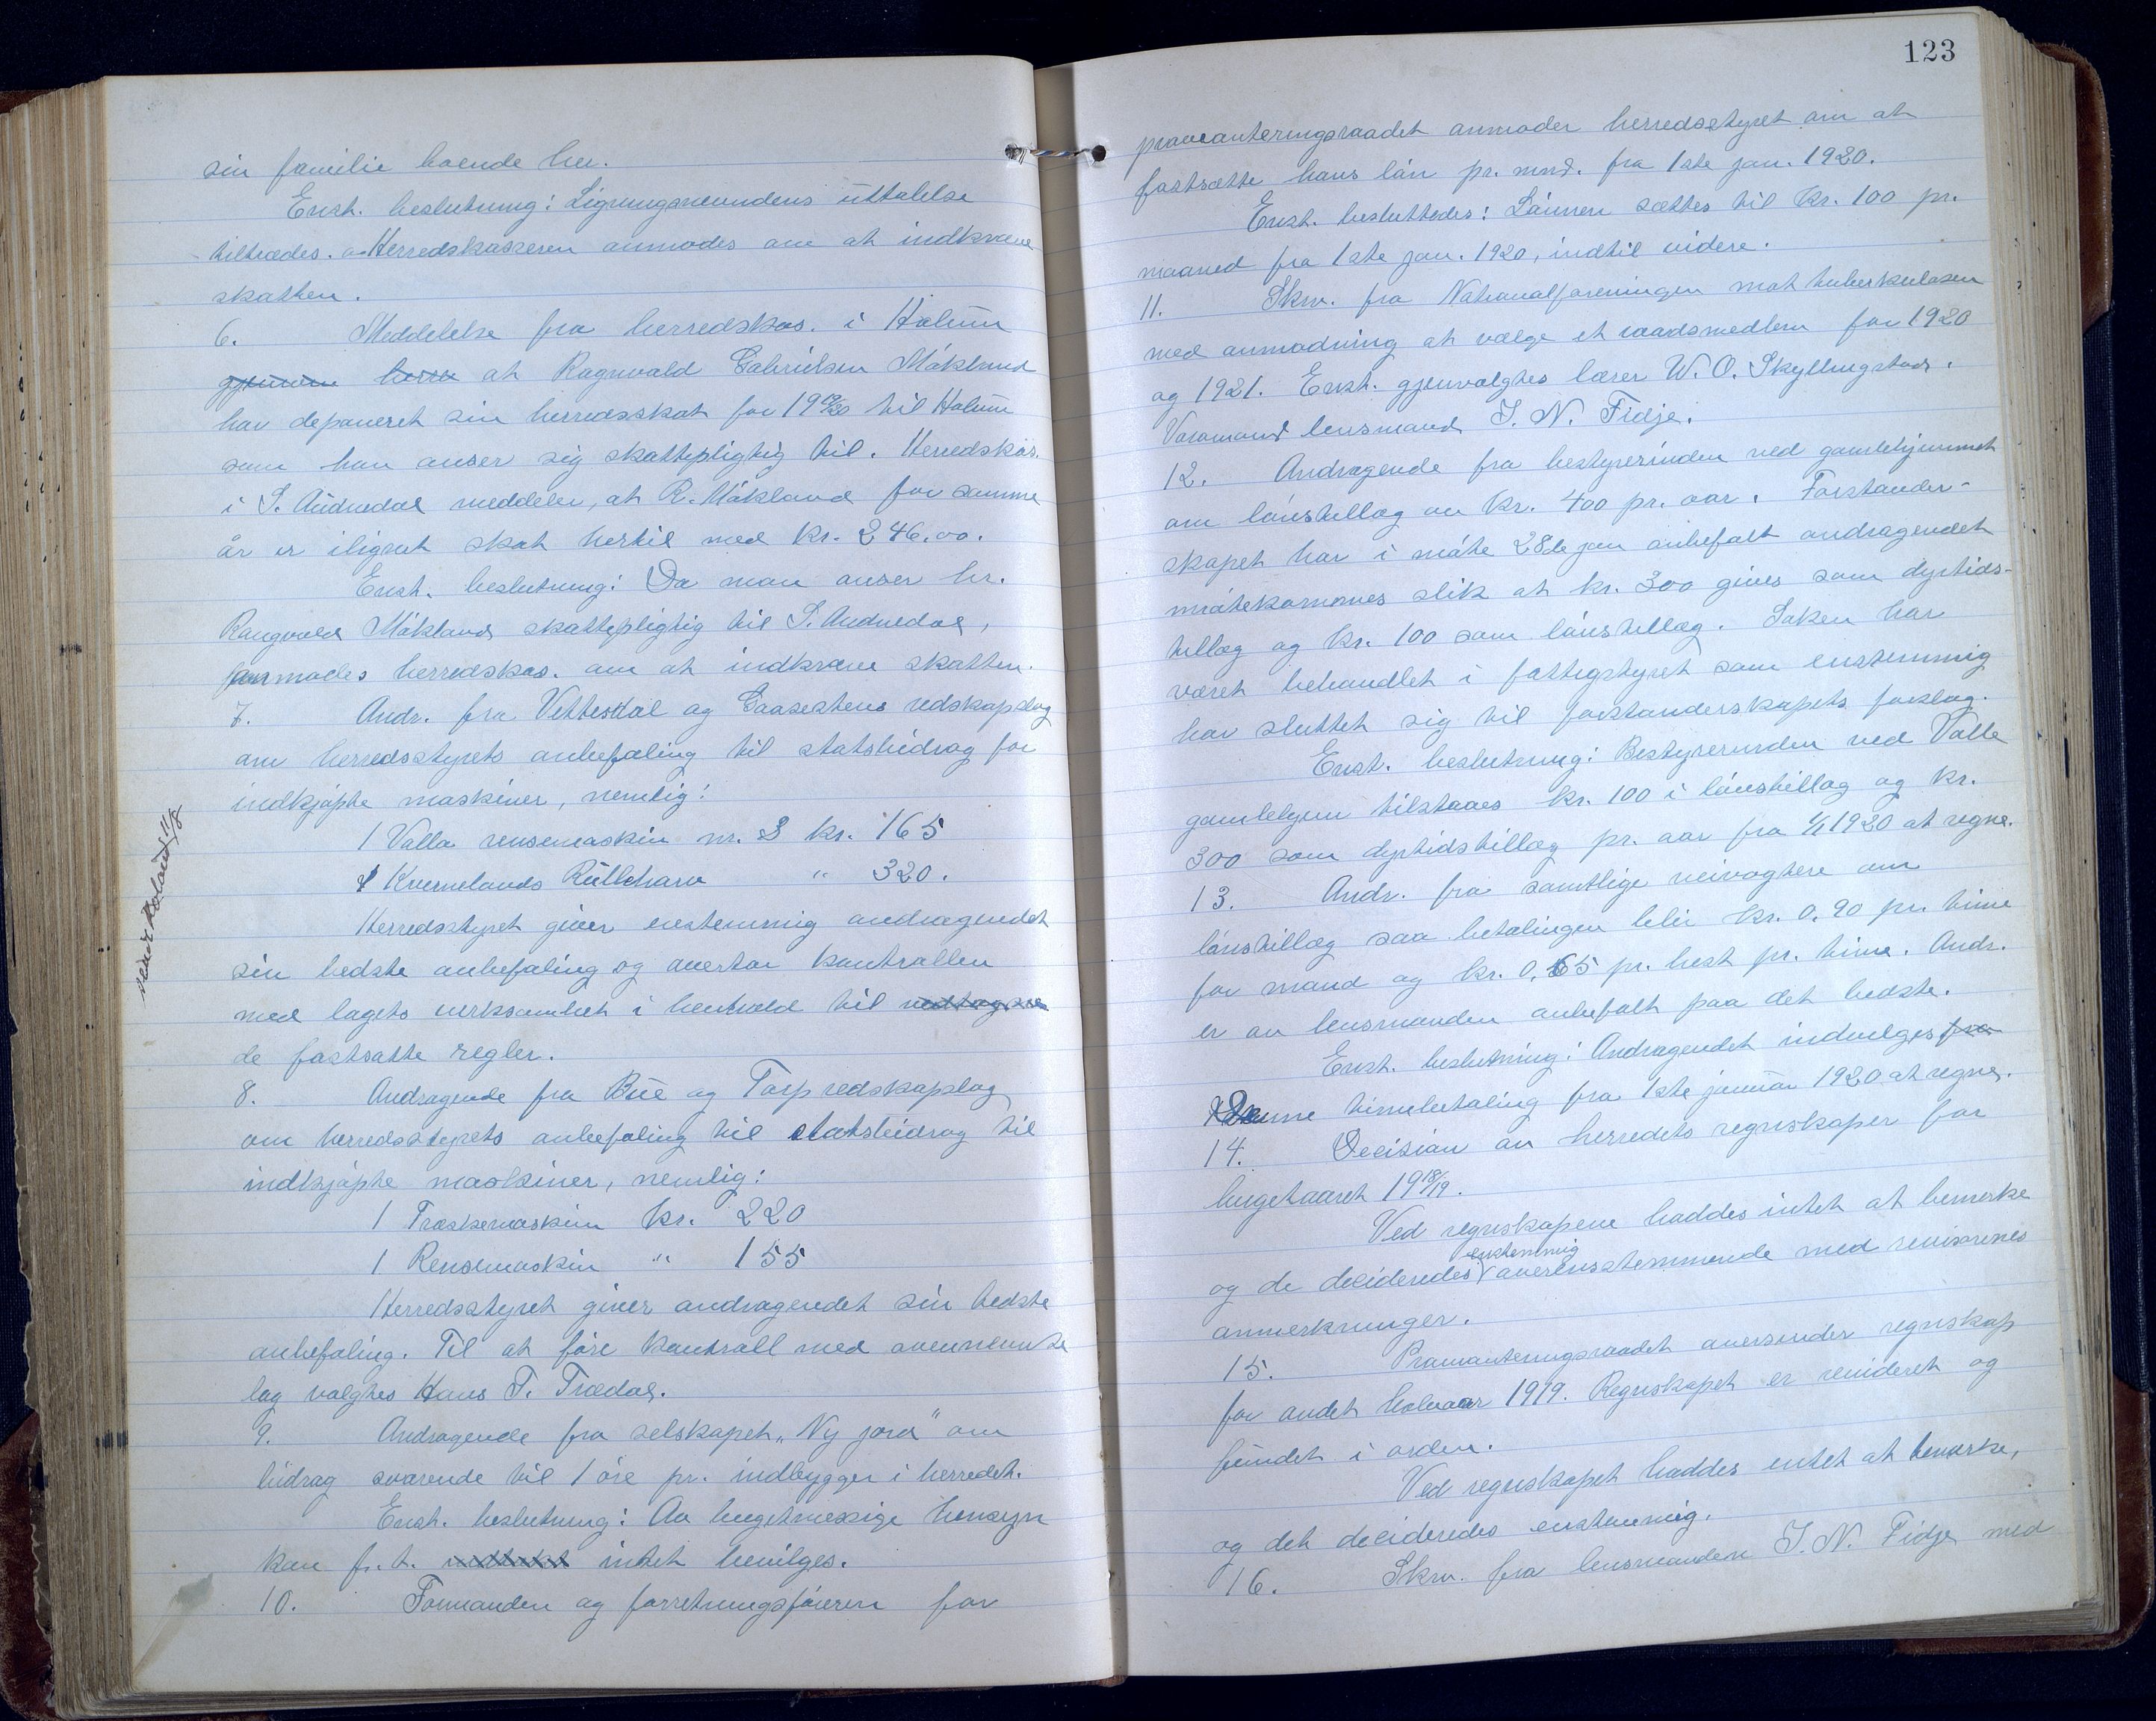 sin familie boende her.
Enst. beslutning: Ligningsnevndens uttalelse
tiltrædes. Herredskasseren anmodes om at indkræve
skatten.
6. Meddelelse fra herredskas. i Holum
at Ragnvald Gabrielsen Møkland
har deponeret sin herredsskat for 1919/20 til Holum
som han anser sig skattepligtig til. Herredskas.
i S. Audnedal meddeler, at R. Møkland for samme
år er ilignet skat hertil med kr. 246.00.
Enst. beslutning: Da man anser hr.
Rangvald Møkland skattepligtig til S. Audnedal,
anmodes herredskas. om at indkræve skatten.
7. Andr. fra Vettesdal og Gaasestens redskapslag
om herredsstyrets anbefaling til statsbidrag for
indkjøpte maskiner, nemlig:
1 Valla rensemaskin nr. 3 kr. 165
1 Kvernelands Rulleharv " 320.
Herredsstyret giver enstemmig andragendet
sin bedste anbefaling og overtar kontrollen
med lagets verksomhet i henhold til vedtagne
de fastsatte regler.
8. Andragende fra Bue og Torp redskapslag
om herredsstyrets anbefaling til statsbidrag til
indkjøpte maskiner, nemlig:
1 Træskemaskin kr. 220
1 Rensemaskin " 155
Herredsstyret giver andragendet sin bedste
anbefaling. Til at føre kontroll med ovennevnte
lag valgtes Hans T. Trædal.
9. Andragende fra selskapet „Ny jord" om
bidrag svarende til 1 øre pr. indbygger i herredet.
Enst. beslutning: Av bugetmessige hensyn
kan f.t. intet bevilges.
10. Formanden og forretningsføreren for
123
provianteringsraadet anmoder herredsstyret om at
fastsætte hans løn pr. mnd. fra 1ste jan. 1920.
Enst. besluttedes: Lønnen sættes til kr. 100 pr.
maaned fra 1ste jan. 1920, indtil videre.
11. Skrv. fra Nationalforeningen mot tuberkulosen
med anmodning at vælge et raadsmedlem for 1920
og 1921. Enst. gjenvalgtes lærer W. O. Skyllingstad.
Varamand lensmand J. N. Fidje.
12. Andragende fra bestyrerinden ved gamlehjemmet
om lønstillæg av kr. 400 pr. aar. Forstander-
skapet har i møte 28de jan anbefalt andragendet
møtekommes slik at kr. 300 gives som dyrtids-
tillæg og kr. 100 som lønstillæg. Saken har
været behandlet i fattigstyret som enstemmig
har sluttet sig til forstanderskapets forslag.
Enst. beslutning: Bestyrerinden ved Valle
gamlehjem tilstaaes kr. 100 i lønstillæg og kr.
300 som dyrtidstillæg pr. aar fra 1/1 1920 at regne.
13. Andr. fra samtlige veivogtere om
lønstillæg saa betalingen blir kr. 0,90 pr. time
for mand og kr. 0,65 pr. hest pr. time. Andr.
er av lensmanden anbefalt paa det bedste.
Enst. beslutning: Andragendet indvilges fra
Denne timebetaling fra 1ste januar 1920 at regne.
14. Decision av herredets regnskaper for
bugetaaret 1918/19.
Ved regnskapene haddes intet at bemerke
og de decideredes enstemmig overensstemmende med revisorenes
anmerkninger.
15. Provianteringsraadet oversender regnskap
for andet halvaar 1919. Regnskapet er revideret og
fundet i orden.
Ved regnskapet haddes intet at bemerke,
og det decideredes enstemmig.
16. Skrv. fra lensmanden J. N. Fidje med